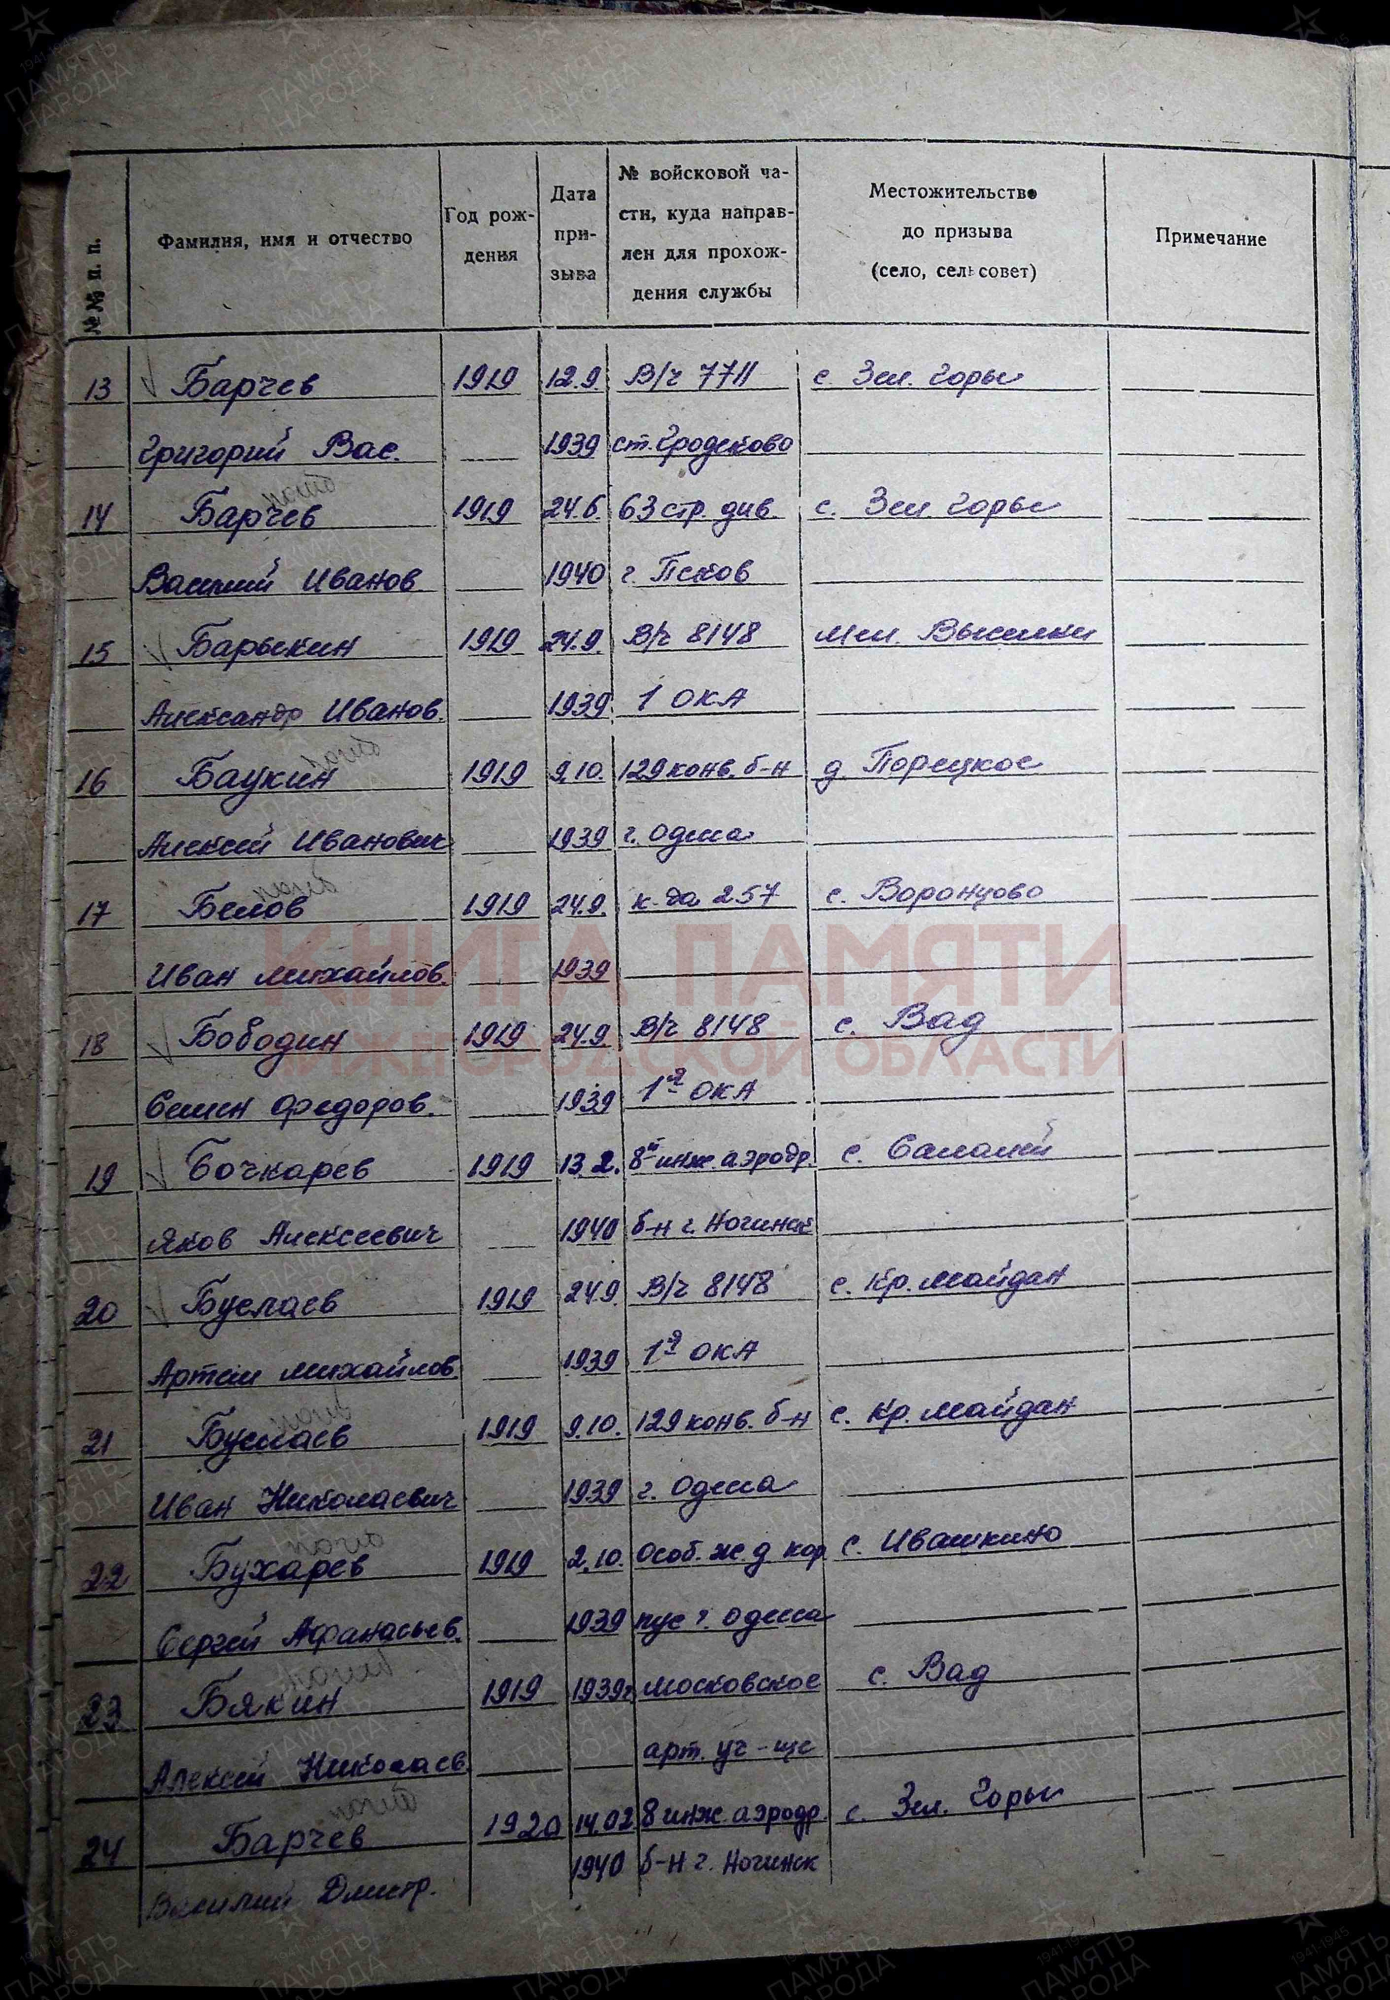 №№ п. п.
Фамилия, имя и отчество
Год рож-
дения
Дата
при-
зыва
№ войсковой ча-
сти, куда направ-
лен для прохож-
дения службы
Местожительство
до призыва
(село, сельсовет)
Примечание
13 Барчев 1919 12.9 В/ч 7711 с. Зел. Горы
Григорий Вас. 1939 ст. Гродеково
погиб
14 Барчев 1919 24.6 63 стр. див. с. Зел Горы
Василий Иванов 1940 г. Псков
15 Барыкин 1919 24.9. В/ч 8148 Мел. Выселки
Александр Иванов. 1939 1 ОКА
погиб
16 Баукин 1919 9.10. 129 конв. б-н д. Порецкое
Алексей Иванович 1939 г. Одесса
погиб
17 Белов 1919 24.9. к-да 257 с. Воронцово
Иван Михайлов. 1939
18 Бободин 1919 24.9 В/ч 8148 с. Вад
Семен Федоров. 1939 1я ОКА
19 Бочкарев 1919 13.2. 8й инж. аэродр. с. Салалей
Яков Алексеевич 1940 б-н г. Ногинск
20 Буслаев 1919 24.9. В/ч 8148 с. Кр. Майдан
Артем Михайлов. 1939 1я ОКА
погиб
21 Буслаев 1919 9.10. 129 конв. б-н с. Кр. Майдан
Иван Николаевич 1939 г. Одесса
погиб
22 Бухарев 1919 2.10. Особ. ж.д кор с. Ивашкино
Сергей Афанасьев. 1939 пус г. Одесса
погиб
23 Бякин 1919 1939г Московское с. Вад
Алексей Николаев. арт. уч-ще
погиб
24 Барчев 1920 14.02 8 инж. аэродр. с. Зел. Горы
Василий Дмитр. 1940 б-н г. Ногинск
КНИГА ПАМЯТИ
НИЖЕГОРОДСКОЙ ОБЛАСТИ
1941-1945
ПАМЯТЬ
НАРОДА